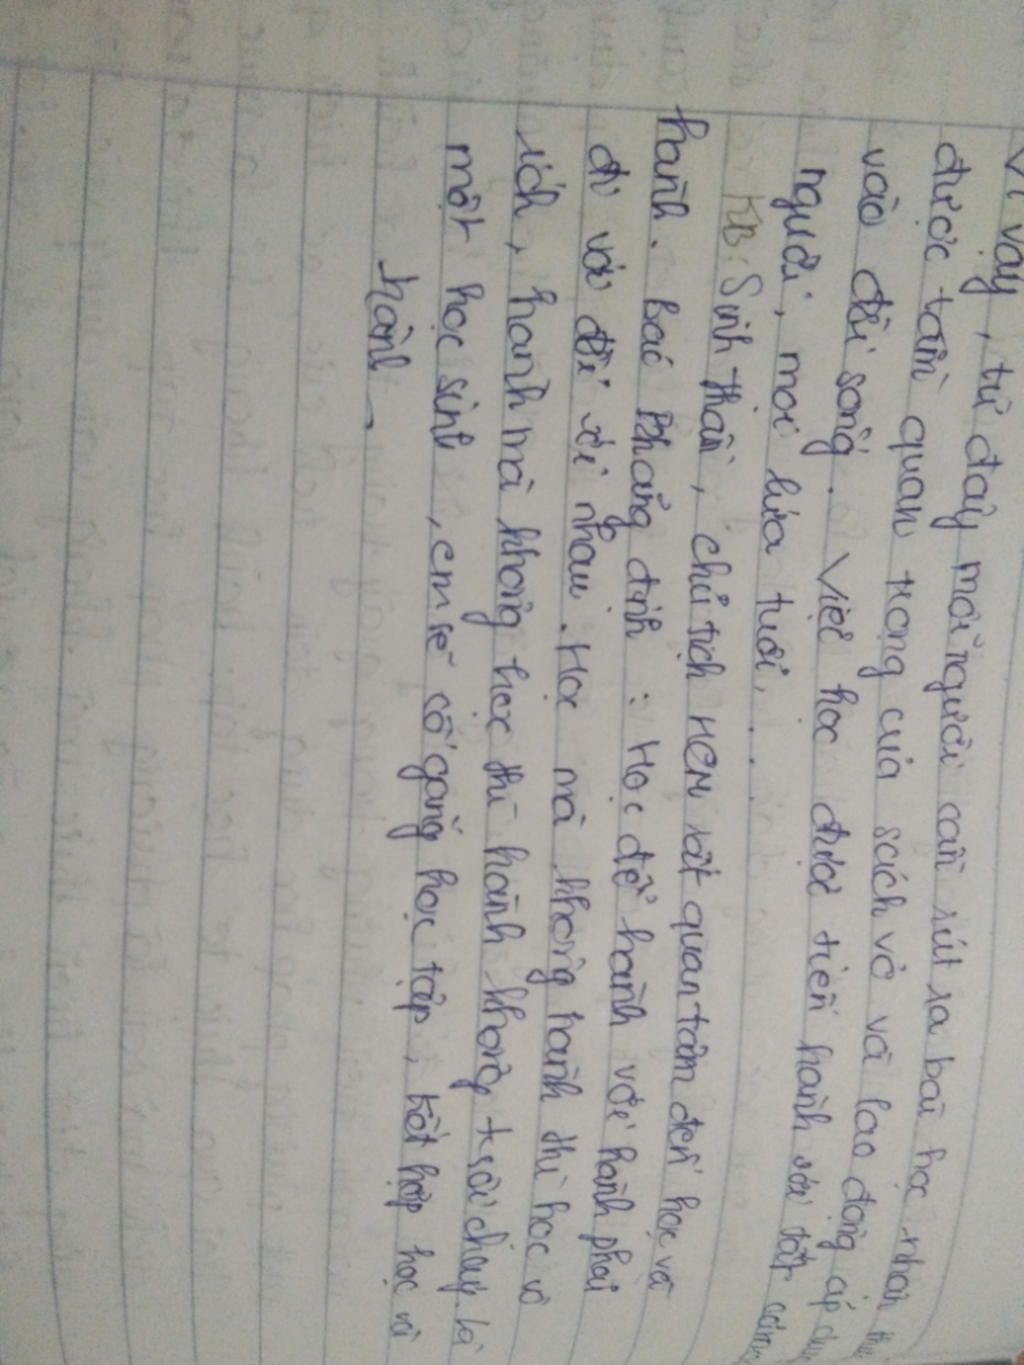 Vì vậy, từ đây mỗi người cần rút ra bài học nhận
được tầm quan trọng của sách vở và lao động áp
vào đời sống. Việc học được tiến hành với tất
người, mọi lứa tuổi...
KB: Sinh thần, chủ tịch HCM rất quan tâm đến học và
hành. Bác khẳng định: Học để hành với hành phải
đi với đôi với nhau. Học mà không hành thì học vô
ích, hành mà không học thì hành không trôi chảy. Là
một học sinh, em sẽ cố gắng học tập, kết hợp học và
hành.